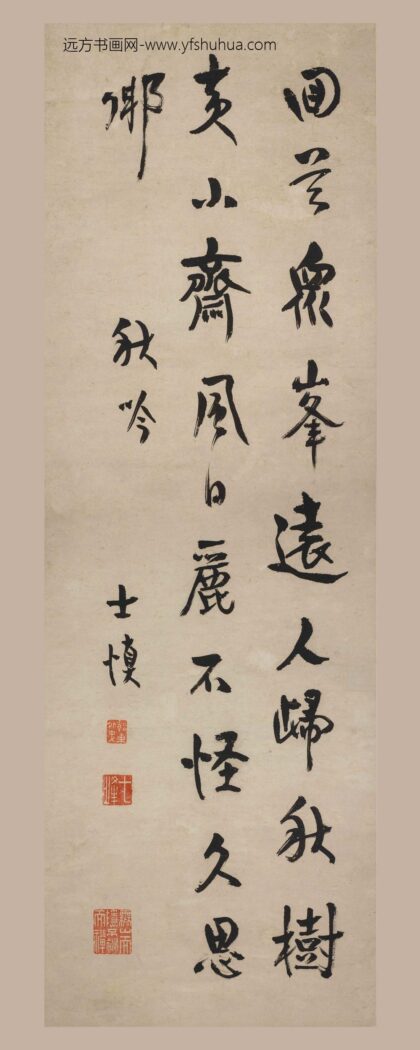 远方书画网-www.yfshuhua.com
回首眾峯遠人歸秋樹
黄小齋風日麗不怪久思
鄉
秋吟
士慎
七峰